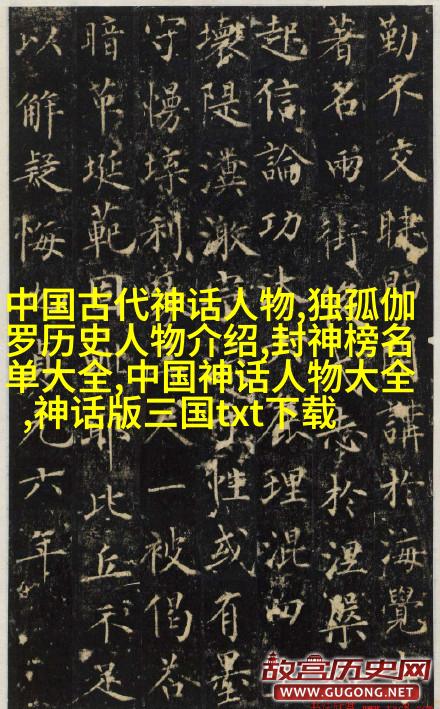 勤不交睫講於海覺
著名兩街志於涅槃
起信論功理混
壞隄漠性或有墨
守慢利一被偈若
暗埏範因耶此丘示足
以解疑悔見六年
中国古代神话人物,独孤伽
罗历史人物介绍,封神榜名
单大全,中国神话人物大全
,神话版三国txt下载
故宫历史网
WWW.GUGONG.NET